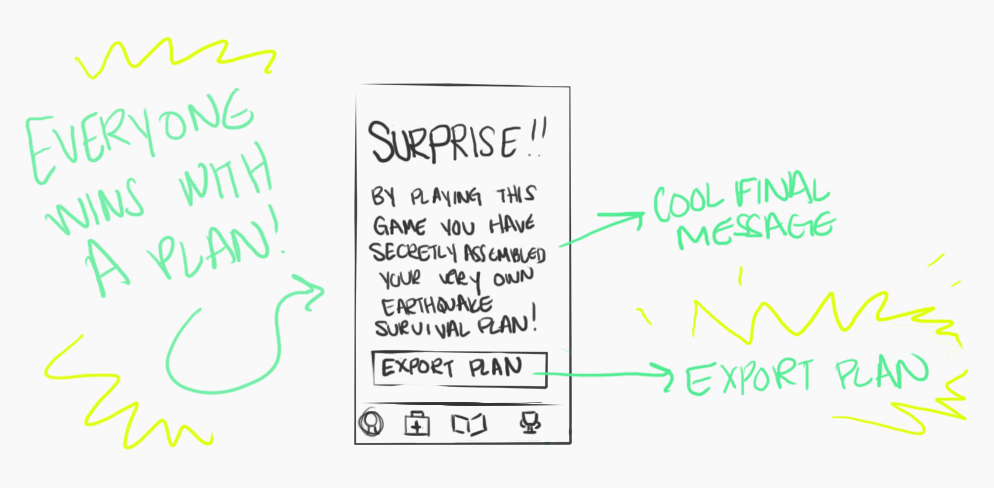 EVERYONE
WINS WITH
A PLAN!
SURPRISE!!
BY PLAYING THIS
GAME YOU HAVE
SECRETLY ASSEMBLED
YOUR VERY OWN
EARTHQUAKE
SURVIVAL PLAN!
EXPORT PLAN
COOL FINAL
MESSAGE
EXPORT PLAN